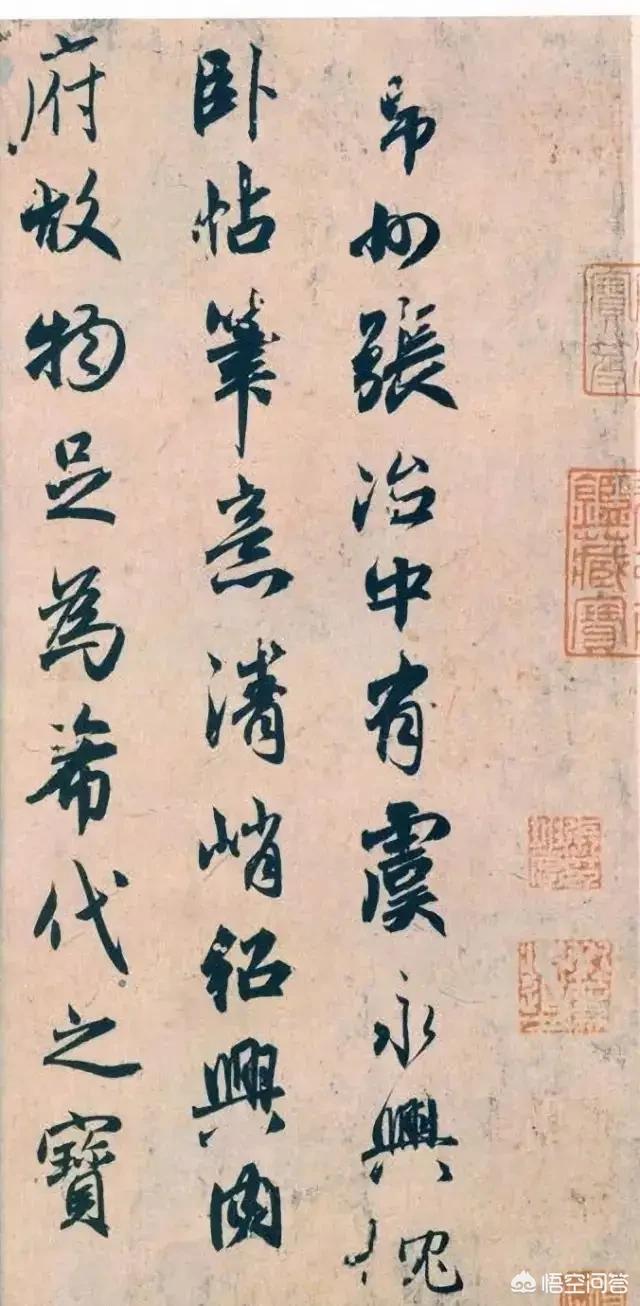 州張治中有虞永興
卧帖筆意清峭紹興内
府故物足為希代之寶
鑑藏寶
悟空问答